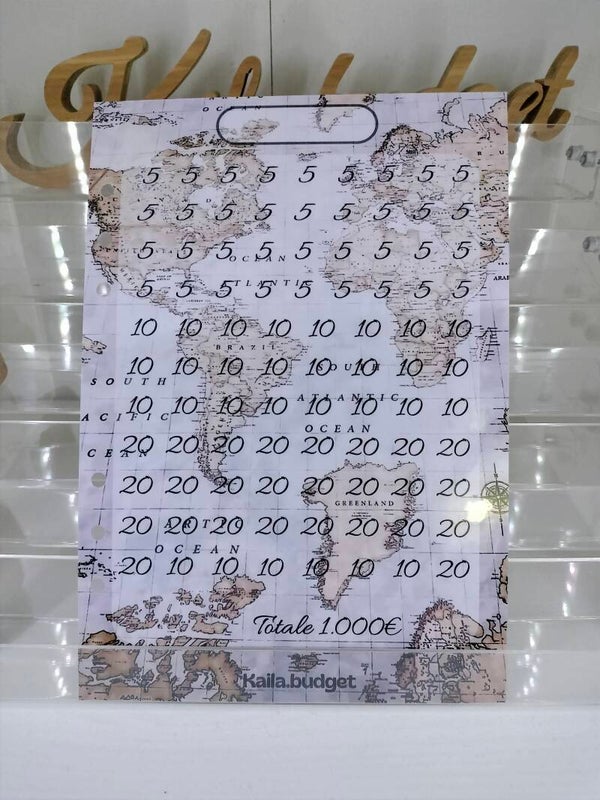 Kaila.budget
OCEAN
5 5 5 5 5 5 5 5 5
5 5 5 5 5 5 5 5 5
5 5 5 5 5 5 5 5 5
OCEAN
5 5 5 5 5 5 5 5 5
ATLANTIC
10 10 10 10 10 10 10 10
BRAZIL
10 10 10 10 10 10 10 10
SOUTH
SOUTH
ATLANTIC
10 10 10 10 10 10 10 10
ACIFIC
OCEAN
20 20 20 20 20 20 20 20
CEAN
20 20 20 20 20 20 20 20
GREENLAND
20 20 20 20 20 20 20 20
ARCTIC
OCEAN
20 10 10 10 10 10 10 20
Totale 1.000€
Kaila.budget